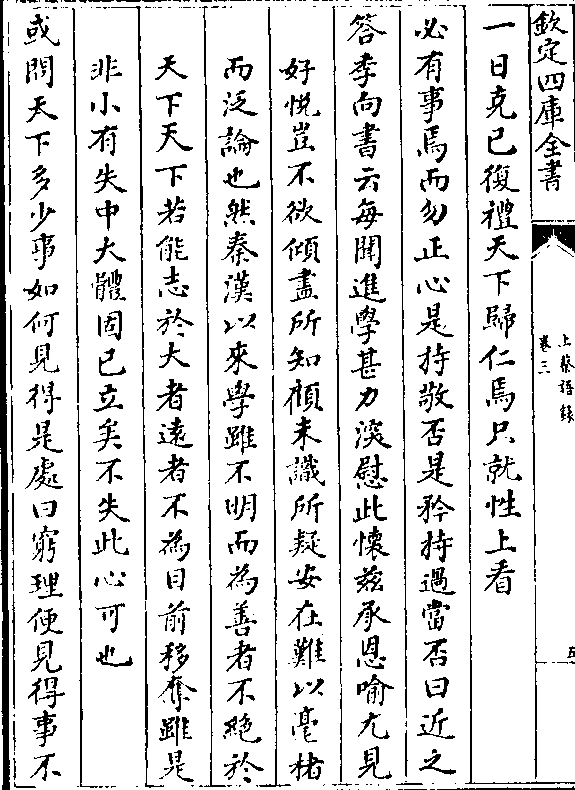 欽定四庫全書
上蔡語錄
卷三
五
一日克己復禮天下歸仁焉只就性上看
必有事焉而勿正心是持敬否是矜持過當否曰近之
答李向書云每聞進學甚力深慰此懷兹承恩喻尤見
好恱豈不欲傾盡所知顧未識所疑安在難以毫楮
而泛論也然秦漢以來學雖不明而為善者不絶於
天下天下若能志於大者遠者不為目前移奪雖是
非小有失中大體固已立矣不失此心可也
或問天下多少事如何見得是處曰窮理便見得事不